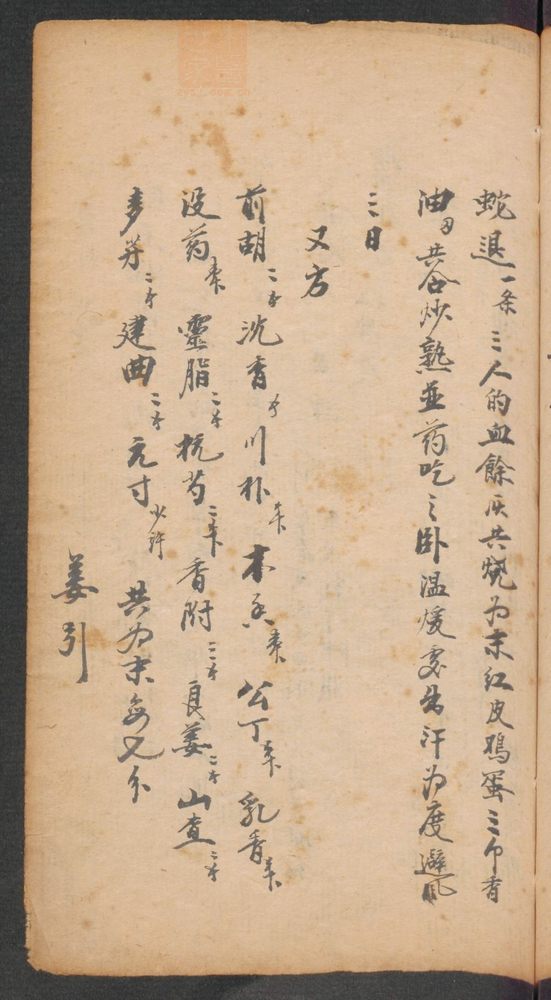 蛇退一条三人的血餘灰共烧为末红皮鸡蛋三个香
油 共合炒熟並药吃之卧温煖处出汗为度避风
三日
又方
前胡二钱沉香钱川朴钱半木香钱半公丁钱半乳香钱半
没药钱半靈脂二钱杭芍二钱半香附三钱良姜二钱山查三钱
二钱建曲二钱元寸少许共为末每七分
姜引